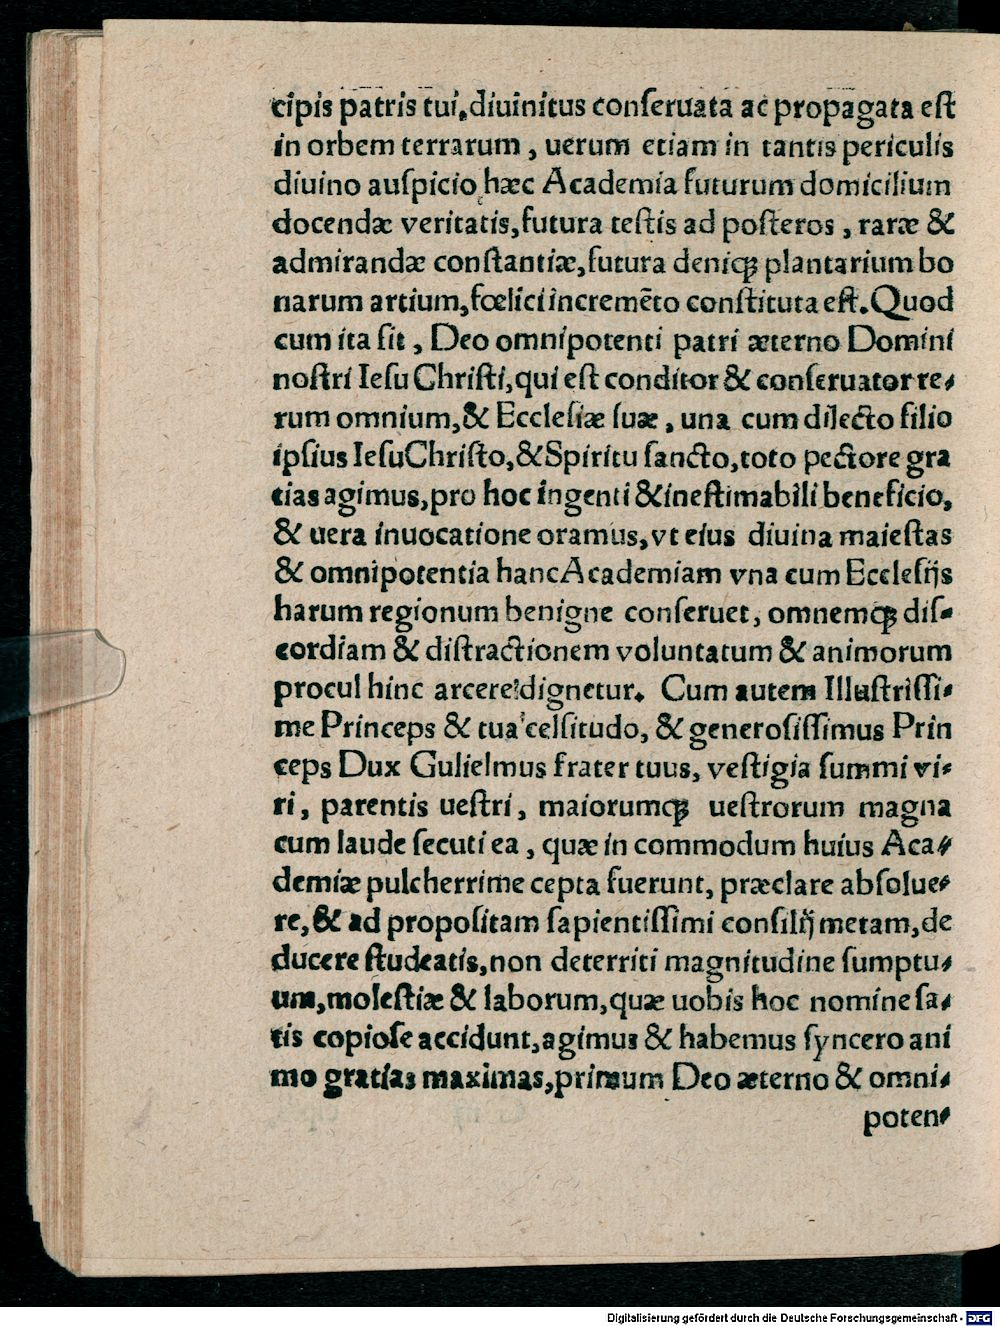 cipis patris tui, diuinitus conſeruata ac propagata eſt
in orbem terrarum, uerum etiam in tantis periculis
diuino auſpicio hæc Academia futurum domicilium
docendæ veritatis, futura teſtis ad poſteros, raræ &
admirandæ conſtantiæ, futura deniqꝫ plantarium bo
narum artium, fœlici incremẽto conſtituta eſt. Quod
cum ita ſit, Deo omnipotenti patri æterno Domini
noſtri Ieſu Chriſti, qui eſt conditor & conſeruator re⸗
rum omnium, & Eccleſiæ ſuæ, una cum dilecto filio
ipſius Ieſu Chriſto, & Spiritu ſancto, toto pectore gra
tias agimus, pro hoc ingenti & ineſtimabili beneficio,
& uera inuocatione oramus, vt eius diuina maieſtas
& omnipotentia hanc Academiam vna cum Eccleſijs
harum regionum benigne conſeruet, omnemqꝫ diſ⸗
cordiam & diſtractionem voluntatum & animorum
procul hinc arcere dignetur. Cum autem Illuſtriſſi⸗
me Princeps & tua celſitudo, & generoſiſſimus Prin
ceps Dux Gulielmus frater tuus, veſtigia ſummi vi⸗
ri, parentis ueſtri, maiorumqꝫ ueſtrorum magna
cum laude ſecuti ea, quæ in commodum huius Aca⸗
demiæ pulcherrime cepta fuerunt, præclare abſolue⸗
re, & ad propoſitam ſapientiſſimi conſilij metam, de
ducere ſtudeatis, non deterriti magnitudine ſumptu⸗
um, moleſtiæ & laborum, quæ uobis hoc nomine ſa⸗
tis copioſe accidunt, agimus & habemus ſyncero ani
mo gratias maximas, primum Deo æterno & omni⸗
poten⸗
Digitalisierung gefördert durch die Deutsche Forschungsgemeinschaft - DFG